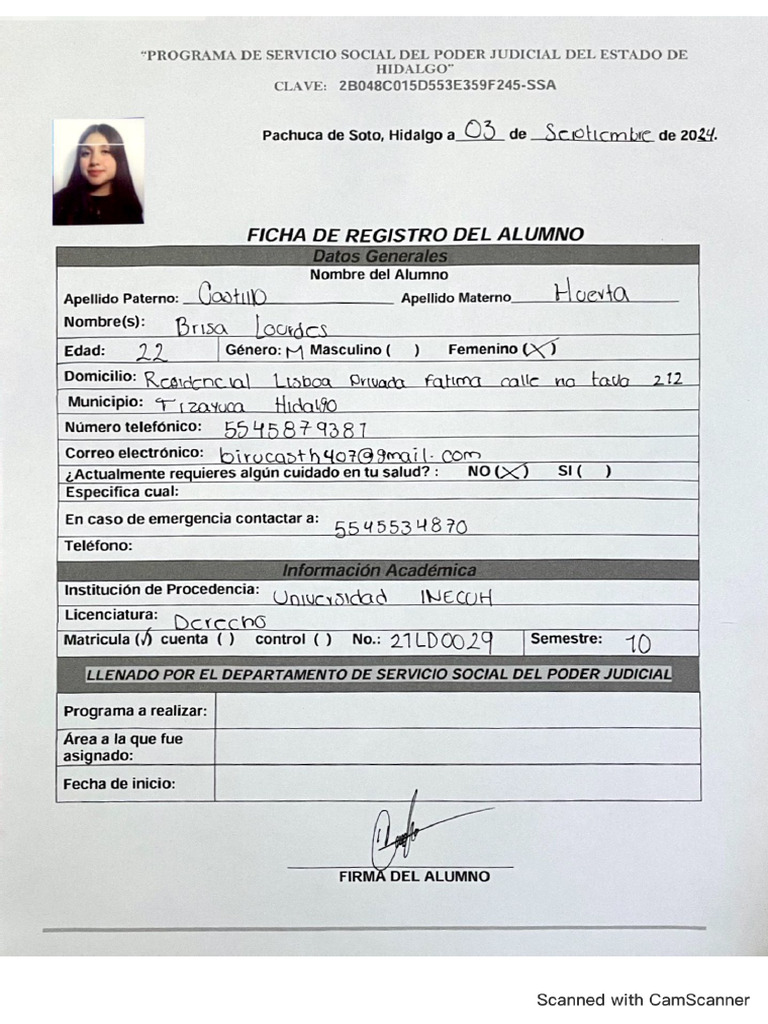 "PROGRAMA DE SERVICIO SOCIAL DEL PODER JUDICIAL DEL ESTADO DE
HIDALGO"
CLAVE: 2B048C015D553E359F245-SSA
Pachuca de Soto, Hidalgo a 03 de Septiembre de 2024.
FICHA DE REGISTRO DEL ALUMNO
Datos Generales
Nombre del Alumno
Apellido Paterno: Castillo Apellido Materno Huerta
Nombre(s): Brisa Lourdes
Edad: 22 Género: M Masculino ( ) Femenino (X)
Domicilio: Residencial Lisboa Privada Fatima calle no tada 212
Municipio: Tizayuca Hidalgo
Número telefónico: 5545879381
Correo electrónico: birucasth407@gmail.com
¿Actualmente requieres algún cuidado en tu salud? : NO (X) SI ( )
Especifica cual:
En caso de emergencia contactar a: 5545534870
Teléfono:
Información Académica
Institución de Procedencia: Universidad INECUH
Licenciatura: Derecho
Matricula (✓) cuenta ( ) control ( ) No.: 21LD0029 Semestre: 10
LLENADO POR EL DEPARTAMENTO DE SERVICIO SOCIAL DEL PODER JUDICIAL
Programa a realizar:
Área a la que fue
asignado:
Fecha de inicio:
FIRMA DEL ALUMNO
Scanned with CamScanner